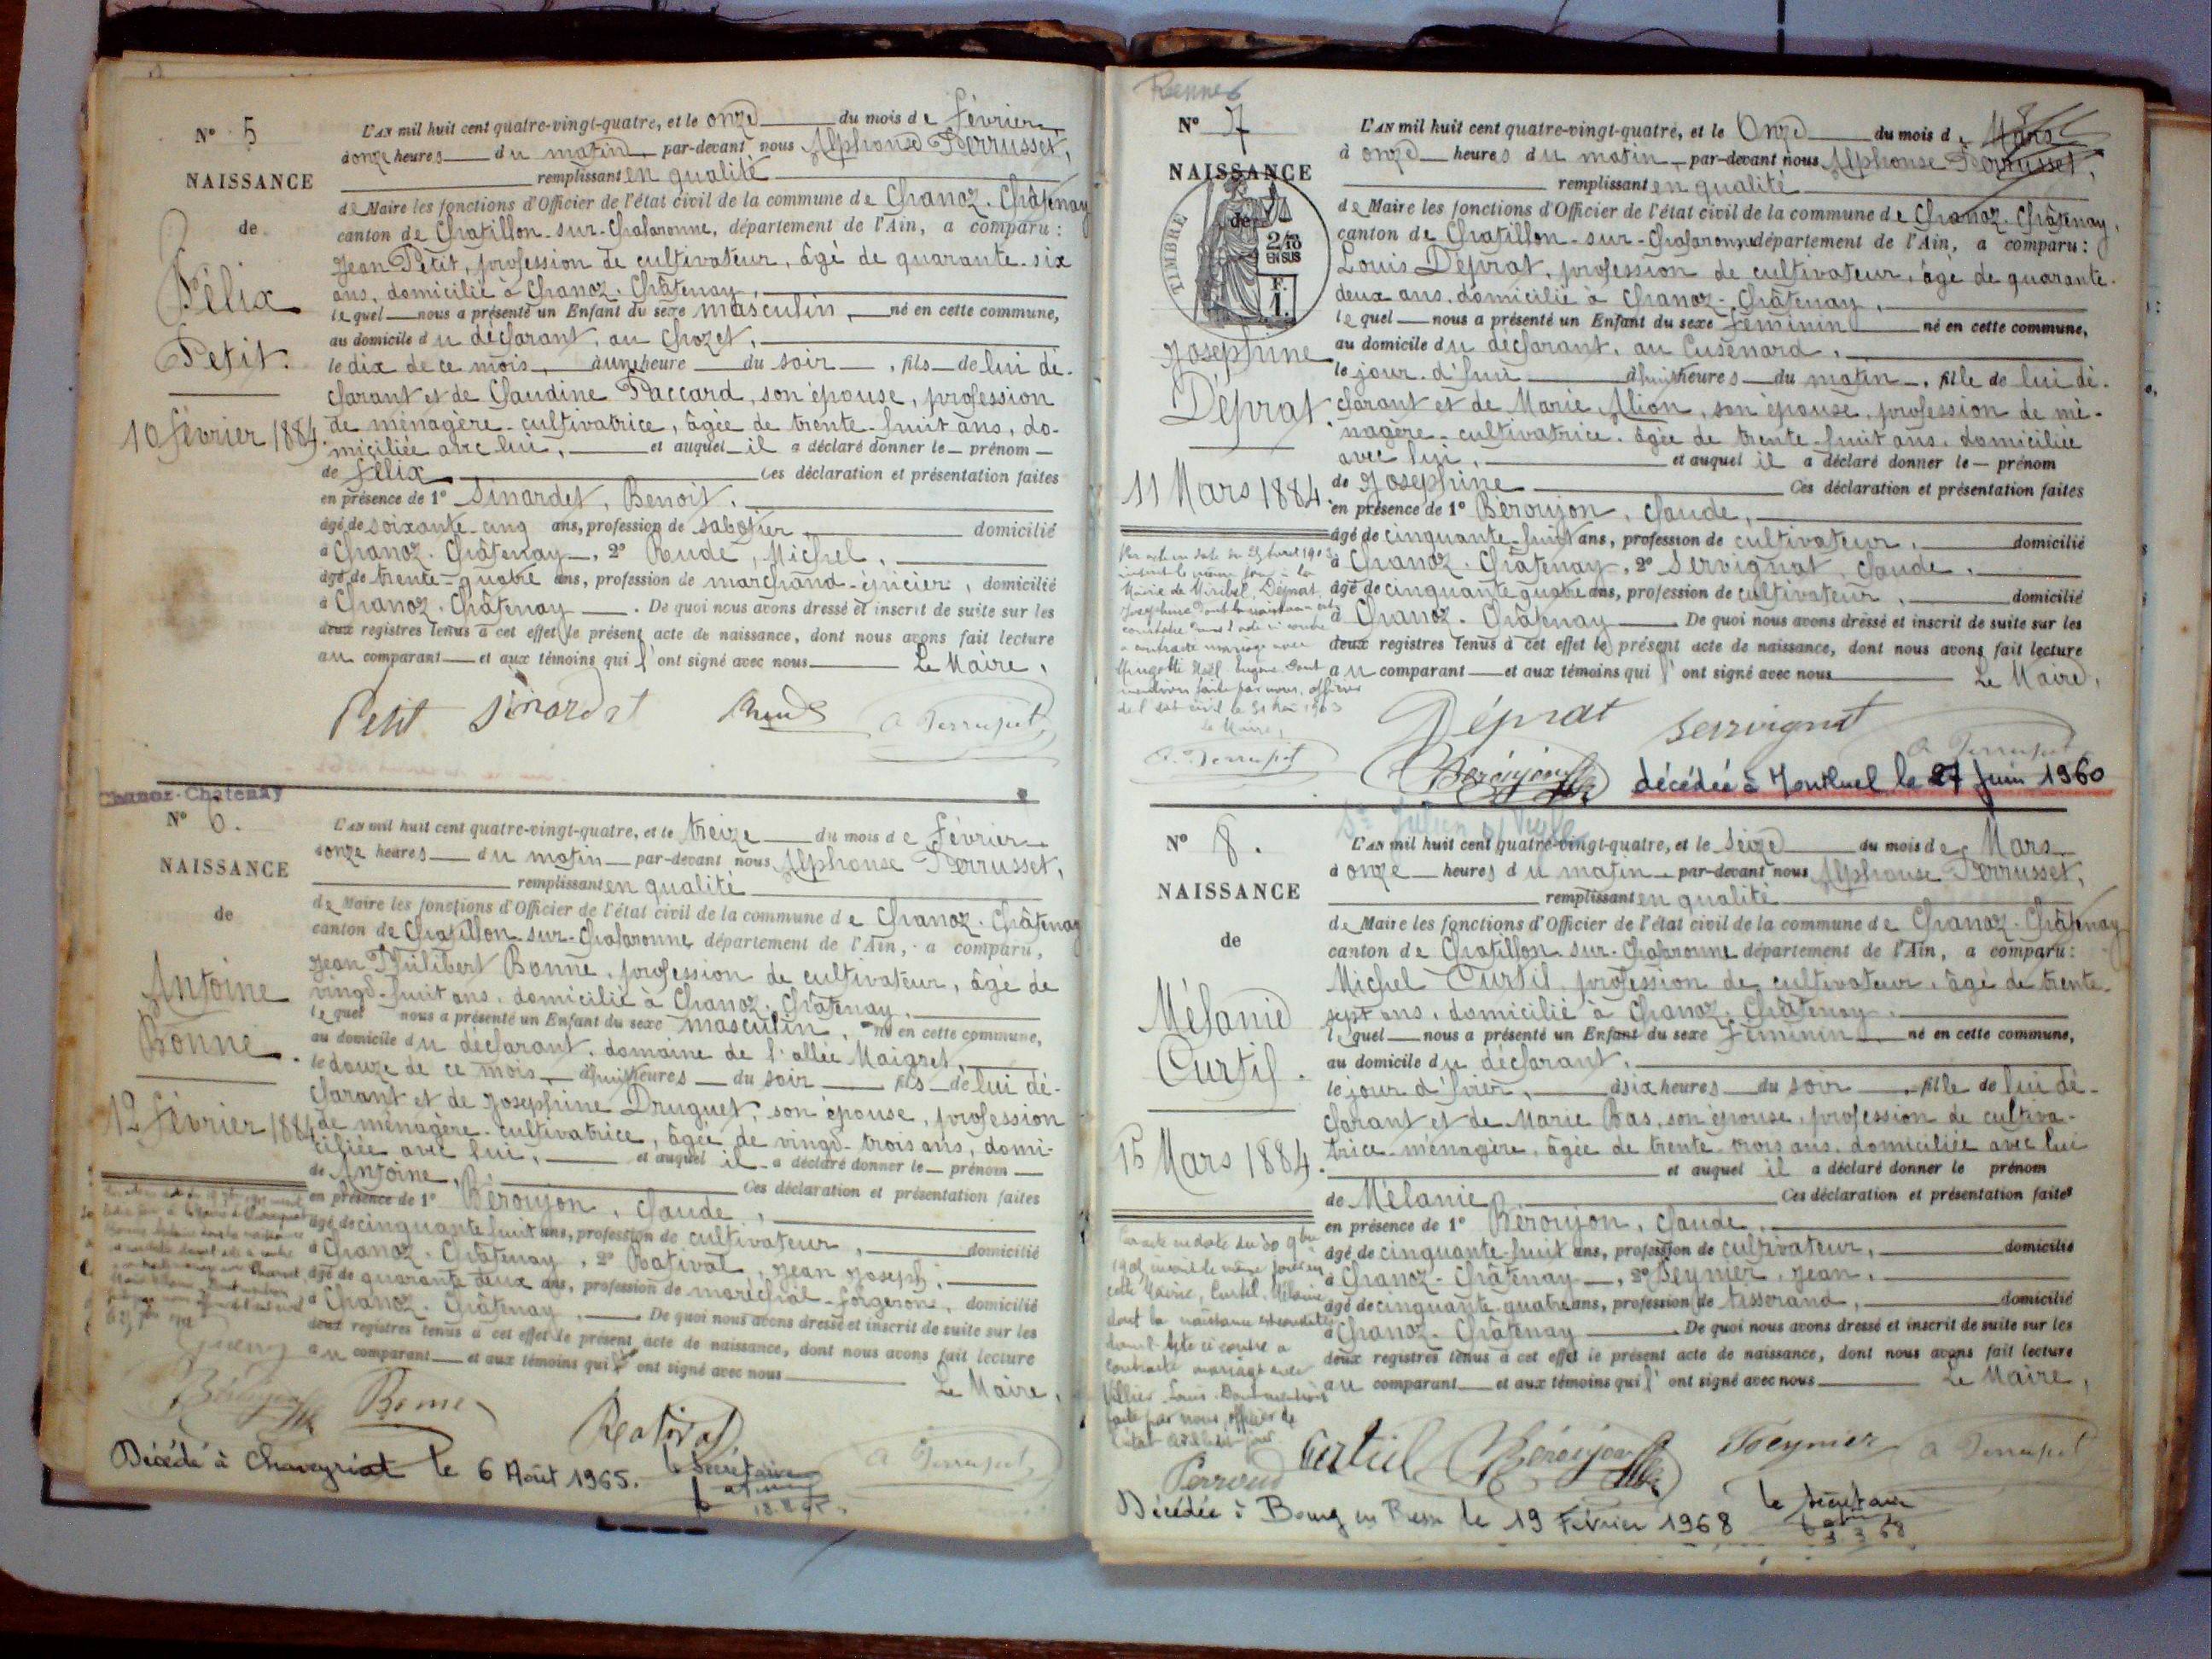 N° 5
NAISSANCE
de
Félix
Petit.
10 février 1884.
L'AN mil huit cent quatre-vingt-quatre, et le onze du mois de février
à onze heures du matin par-devant nous Alphonse Perrusset,
remplissant en qualité
de Maire les fonctions d'Officier de l'état civil de la commune de Chanoz-Châtenay
canton de Châtillon-sur-Chalaronne, département de l'Ain, a comparu :
Jean Petit, profession de cultivateur, âgé de quarante-six
ans, domicilié à Chanoz-Châtenay,
lequel nous a présenté un Enfant du sexe masculin, né en cette commune,
au domicile du déclarant, au Chozet,
le dix de ce mois, à une heure du soir, fils de lui dé-
clarant et de Claudine Paccard, son épouse, profession
de ménagère-cultivatrice, âgée de trente-huit ans, do-
miciliée avec lui, et auquel il a déclaré donner le prénom
de Félix Ces déclaration et présentation faites
en présence de 1° Sinardet, Benoit,
âgé de soixante-cinq ans, profession de sabotier domicilié
à Chanoz-Châtenay, 2° Rude, Michel,
âgé de trente-quatre ans, profession de marchand-épicier, domicilié
à Chanoz-Châtenay. De quoi nous avons dressé et inscrit de suite sur les
deux registres tenus à cet effet le présent acte de naissance, dont nous avons fait lecture
au comparant et aux témoins qui l'ont signé avec nous Le Maire,
Petit Sinardet Rude A Perrusset
Chanoz-Chatenay
N° 6.
NAISSANCE
de
Antoine
Bonne.
12 février 1884
L'AN mil huit cent quatre-vingt-quatre, et le treize du mois de février
à onze heures du matin par-devant nous Alphonse Perrusset,
remplissant en qualité
de Maire les fonctions d'Officier de l'état civil de la commune de Chanoz-Châtenay
canton de Châtillon-sur-Chalaronne département de l'Ain, a comparu,
Jean Philibert Bonne, profession de cultivateur, âgé de
vingt-huit ans, domicilié à Chanoz-Châtenay,
lequel nous a présenté un Enfant du sexe masculin, né en cette commune,
au domicile du déclarant, domaine de l'allée Maigret,
le douze de ce mois, à huit heures du soir fils de lui dé-
clarant et de Josephine Druguet, son épouse, profession
de ménagère-cultivatrice, âgée de vingt-trois ans, domi-
ciliée avec lui, et auquel il a déclaré donner le prénom
de Antoine, Ces déclaration et présentation faites
en présence de 1° Béroujon, Claude,
âgé de cinquante huit ans, profession de cultivateur, domicilié
à Chanoz-Châtenay, 2° Rativat, Jean Joseph,
âgé de quarante deux ans, profession de maréchal-forgeron, domicilié
à Chanoz-Châtenay, De quoi nous avons dressé et inscrit de suite sur les
deux registres tenus à cet effet le présent acte de naissance, dont nous avons fait lecture
au comparant et aux témoins qui l'ont signé avec nous
Le Maire,
Béroujon Bonne Rativat A Perrusset
Décédé à Chaveyriat le 6 Août 1965. le Secrétaire
N° 7
NAISSANCE
de
TIMBRE
2/10
EN SUS
F.
1.
Josephine
Déprat.
11 Mars 1884.
L'AN mil huit cent quatre-vingt-quatre, et le Onze du mois de Mars
à onze heures du matin, par-devant nous Alphonse Perrusset,
remplissant en qualité
de Maire les fonctions d'Officier de l'état civil de la commune de Chanoz-Châtenay,
canton de Châtillon-sur-Chalaronne département de l'Ain, a comparu :
Louis Déprat, profession de cultivateur, âgé de quarante-
deux ans, domicilié à Chanoz-Châtenay,
lequel nous a présenté un Enfant du sexe féminin né en cette commune,
au domicile du déclarant, au Cusenard,
le jour d'hui à huit heures du matin, fille de lui dé-
clarant et de Marie Alion, son épouse, profession de mé-
nagère-cultivatrice, âgée de trente-huit ans, domiciliée
avec lui, et auquel il a déclaré donner le prénom
de Josephine Ces déclaration et présentation faites
en présence de 1° Béroujon, Claude,
âgé de cinquante-huit ans, profession de cultivateur, domicilié
à Chanoz-Châtenay, 2° Servignat, Claude,
âgé de cinquante quatre ans, profession de cultivateur, domicilié
à Chanoz-Châtenay De quoi nous avons dressé et inscrit de suite sur les
deux registres tenus à cet effet le présent acte de naissance, dont nous avons fait lecture
au comparant et aux témoins qui l'ont signé avec nous Le Maire,
Mairie de Miribel, Déprat,
Josephine dont la naissance est
constatée dans l'acte ci contre
a contracté mariage avec
mention faite par nous, officier
de l'état civil le 31 Mai 1903
Le Maire,
A. Perrusset
Déprat Servignat A Perrusset
Béroujon décédée à Montluel le 27 Juin 1960
N° 8.
NAISSANCE
de
Mélanie
Curtil.
15 Mars 1884.
L'AN mil huit cent quatre-vingt-quatre, et le Seize du mois de Mars
à onze heures du matin par-devant nous Alphonse Perrusset,
remplissant en qualité
de Maire les fonctions d'Officier de l'état civil de la commune de Chanoz-Châtenay
canton de Châtillon-sur-Chalaronne département de l'Ain, a comparu :
Michel Curtil, profession de cultivateur, âgé de trente-
sept ans, domicilié à Chanoz-Châtenay,
lequel nous a présenté un Enfant du sexe féminin né en cette commune,
au domicile du déclarant,
le jour d'hier, à six heures du soir, fille de lui dé-
clarant et de Marie Bas, son épouse, profession de cultiva-
trice-ménagère, âgée de trente-trois ans, domiciliée avec lui
et auquel il a déclaré donner le prénom
de Mélanie Ces déclaration et présentation faites
en présence de 1° Béroujon, Claude,
âgé de cinquante-huit ans, profession de cultivateur, domicilié
à Chanoz-Châtenay, 2° Peynier, Jean,
âgé de cinquante-quatre ans, profession de tisserand, domicilié
à Chanoz-Châtenay De quoi nous avons dressé et inscrit de suite sur les
deux registres tenus à cet effet le présent acte de naissance, dont nous avons fait lecture
au comparant et aux témoins qui l'ont signé avec nous Le Maire,
cette Mairie, Curtil, Mélanie
dont la naissance est constatée
dans l'acte ci contre a
contracté mariage avec
Louis. Dont mention
faite par nous, officier de
l'état civil
Perroud
Curtil Béroujon Peynier A Perrusset
Décédée à Bourg en Bresse le 19 Février 1968 le Secrétaire